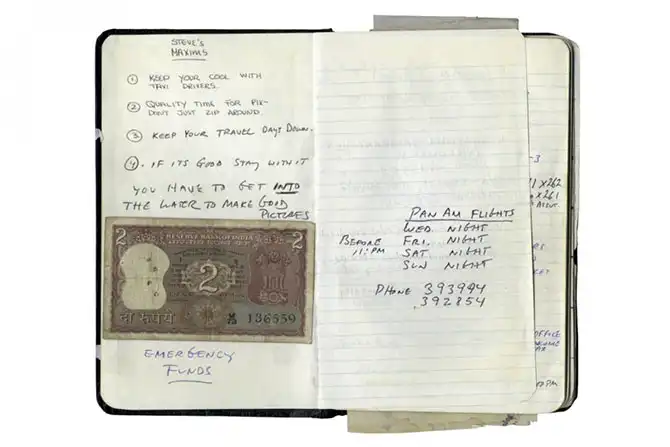 STEVE'S
MAXIMS
① KEEP YOUR COOL WITH
TAXI DRIVERS.
② QUALITY TIME FOR PIX-
DON'T JUST ZIP AROUND.
③ KEEP YOUR TRAVEL DAYS DOWN.
④. IF ITS GOOD STAY WITH IT
YOU HAVE TO GET INTO
THE WATER TO MAKE GOOD
PICTURES
2 RESERVE BANK OF INDIA 2
2
136559
EMERGENCY
FUNDS
PAN AM FLIGHTS
WED. NIGHT
BEFORE FRI. NIGHT
11:PM SAT NIGHT
SUN NIGHT
PHONE 393994
392854
-3
X262
X261
OFFICE